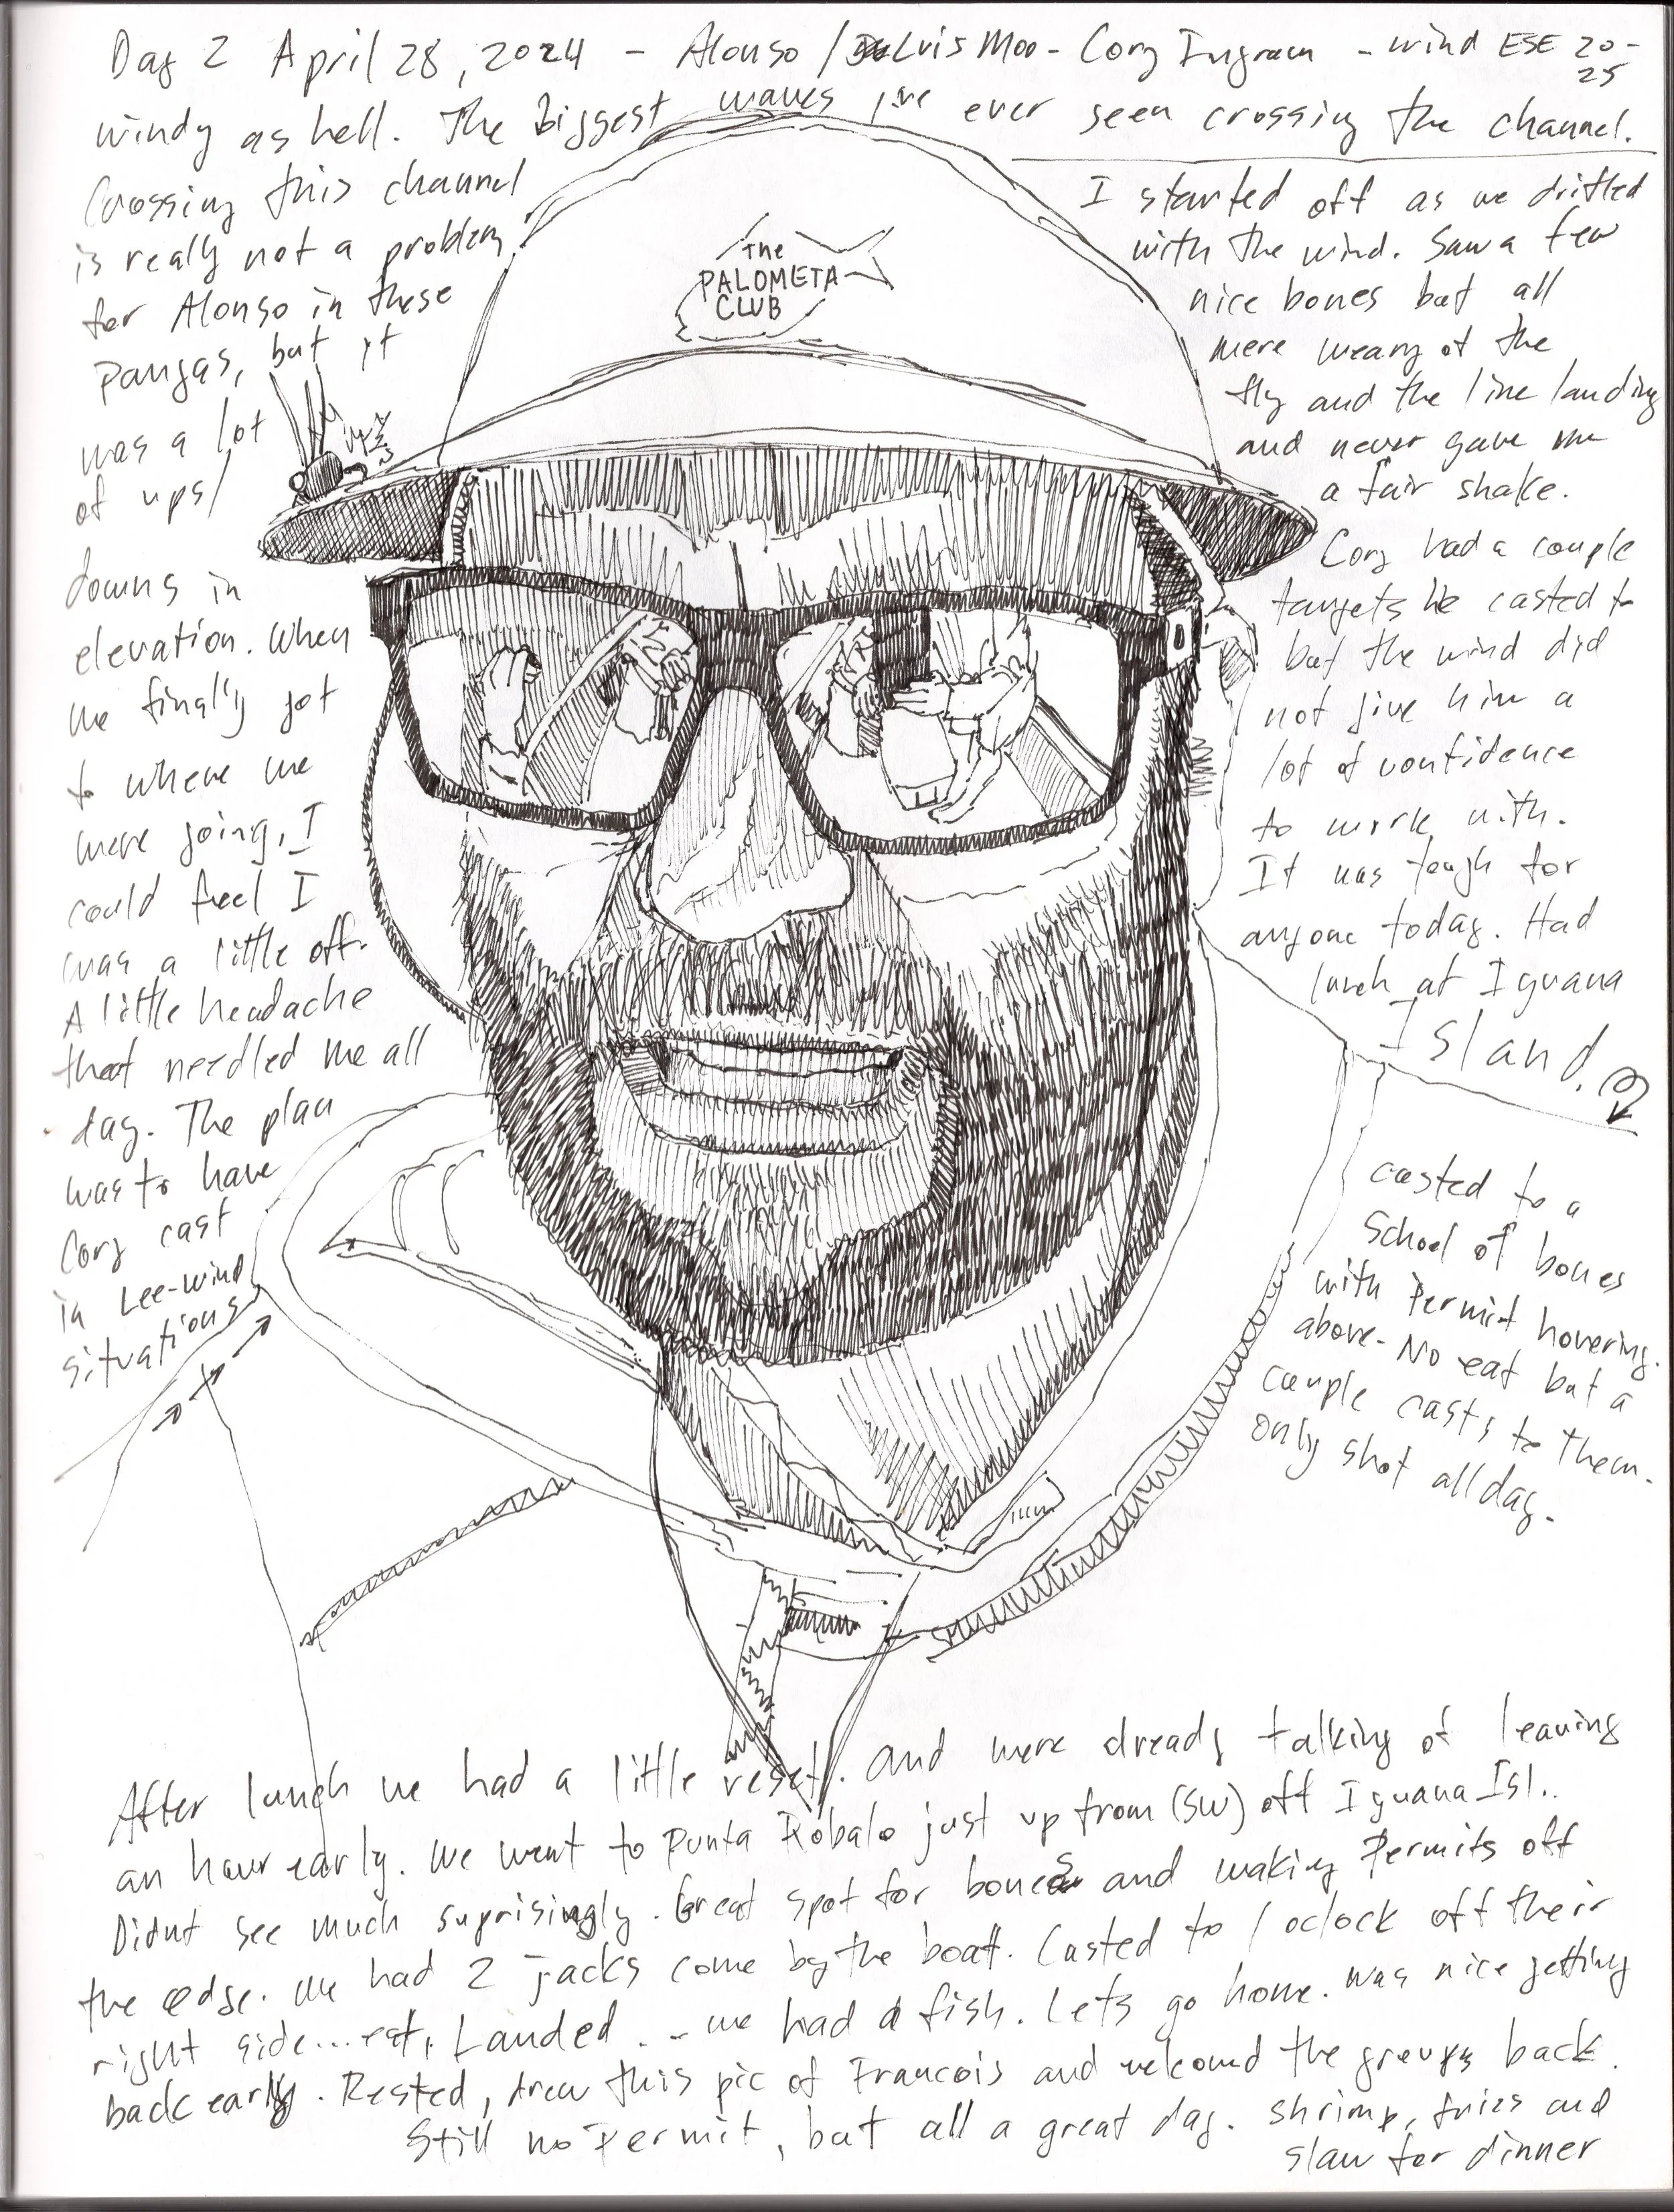 Day 2 April 28, 2024 - Alonso / Luis Moo - Cory Ingram - wind ESE 20-
25
windy as hell. The Biggest waves I've ever seen crossing the channel.
Crossing this channel
is really not a problem
for Alonso in these
pangas, but it
was a lot
of ups/
downs in
elevation. When
we finally got
to where we
were going, I
could feel I
was a little off.
A little headache
that needled me all
day. The plan
was to have
Cory cast
in Lee-wind
situations
The
PALOMETA
CLUB
I started off as we drifted
with the wind. Saw a few
nice bones but all
were weary of the
fly and the line landing
and never gave me
a fair shake.
Cory had a couple
targets he casted to
but the wind did
not give him a
lot of confidence
to work with.
It was tough for
anyone today. Had
lunch at Iguana
Island.
casted to a
School of bones
with Permit hovering
above. No eat but a
couple casts to them.
only shot all day.
After lunch we had a little reset. and were already talking of leaving
an hour early. We went to Punta Robalo just up from (SW) off Iguana Isl..
Didnt see much suprisingly. Great spot for bones and waking Permits off
the edge. We had 2 jacks come by the boat. Casted to 1 oclock off their
right side... eat, Landed... we had a fish. Lets go home. Was nice getting
back early. Rested, drew this pic of Francois and welcomd the groups back.
Still no Permit, but all a great day. shrimp, fries and
slaw for dinner